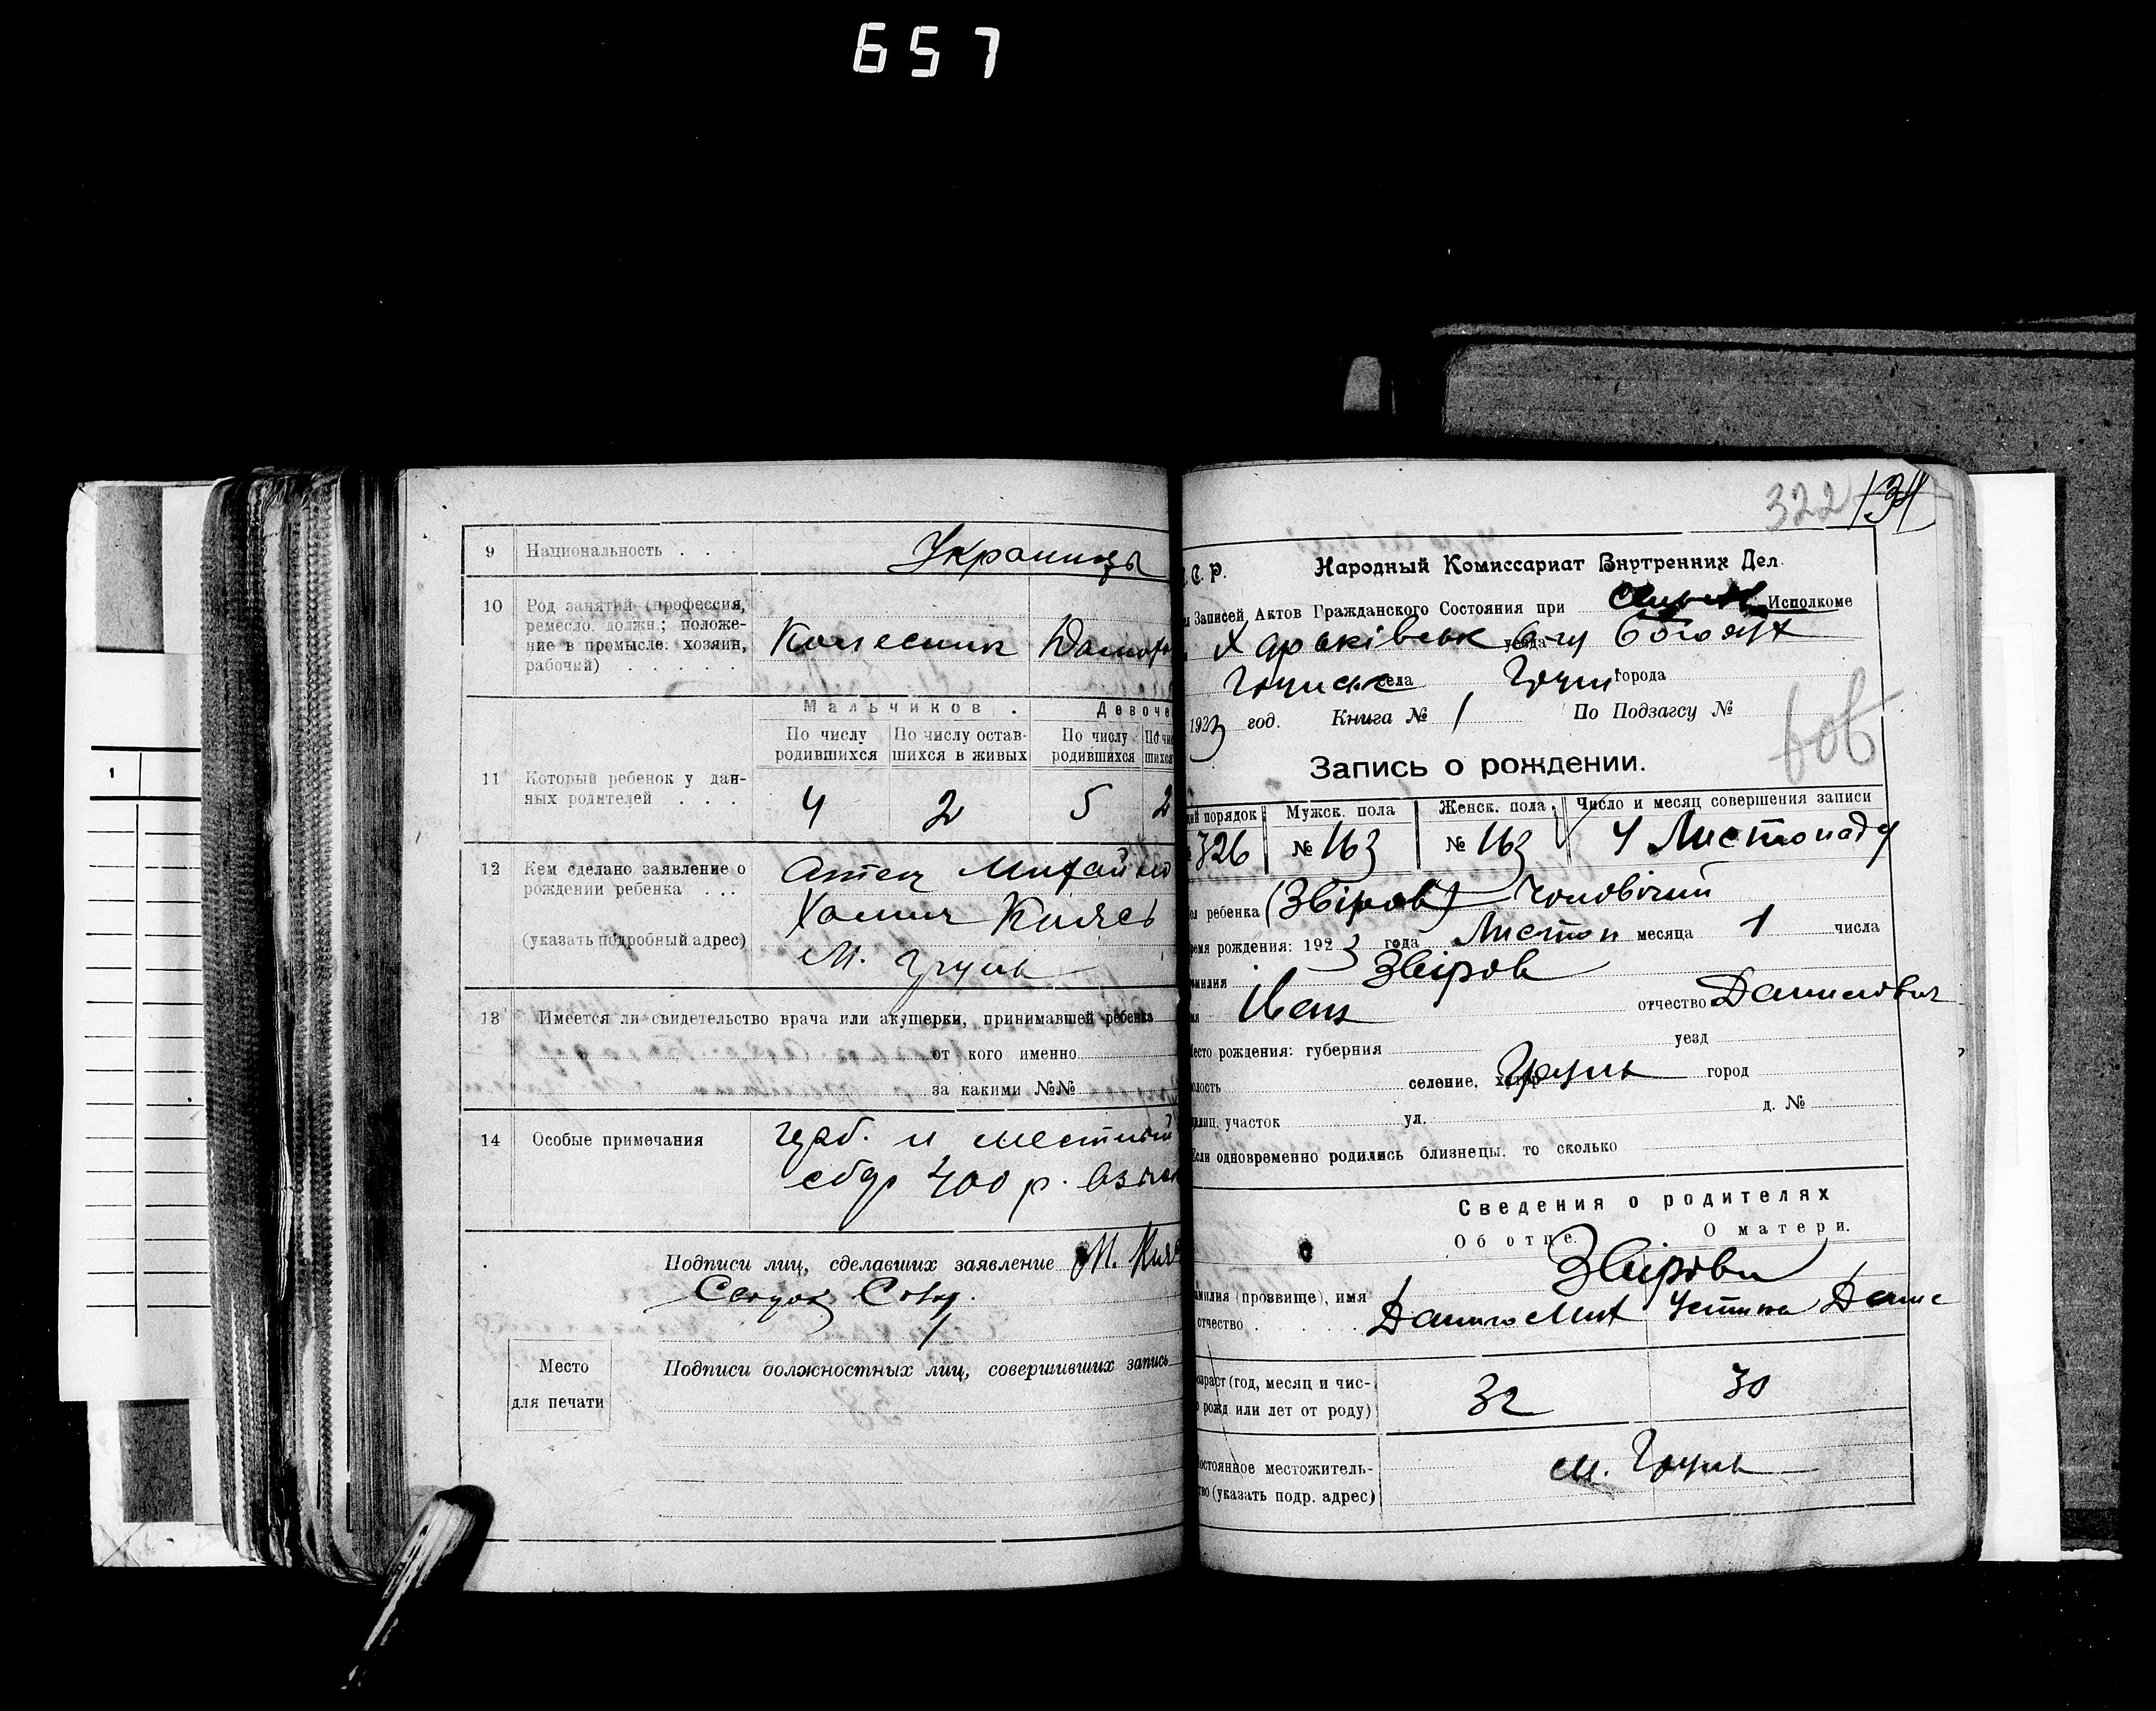 657
9 Национальность . . . Украинцы
10 Род занятий (профессия,
ремесло, должн.; положе-
ние в промысле: хозяин,
рабочий) . . . . .
Мальчиков . Девоче
По числу родившихся По числу остав-шихся в живых По числу родившихся
11 Который ребенок у дан-
ных родителей . . . 4 2 5 2
12 Кем сделано заявление о
рождении ребенка . . .
(указать подробный адрес)
М. Грунь
13 Имеется ли свидетельство врача или акушерки, принимавшей ребенка
от кого именно
за какими №№
14 Особые примечания
герб. и местный
сбор 400 р.
Подписи лиц, сделавших заявление
Место
для печати
Подписи должностных лиц, совершивших запись
322 134
С. Р. Народный Комиссариат Внутренних Дел.
Записей Актов Гражданского Состояния при Исполкоме
Харьківськ уезда Богодух
села Грунь города
1923 год. Книга № 1 По Подзагсу №
Запись о рождении.
порядок Мужск. пола Женск. пола. Число и месяц совершения записи
326 № 163 № 163 4 Листопаду
ребенка (Звіров) Чоловічий
рождения: 1923 года Листоп месяца 1 числа
Звіров
Іван отчество Данилович
место рождения: губерния уезд
селение, хутор Грунь город
участок ул. д. №
Если одновременно родились близнецы, то сколько
Сведения о родителях
Об отце. О матери.
Звірови
(прозвище), имя
отчество . . . . . Данило Мих Устина Дани
(год, месяц и чис-
рожд. или лет от роду) 32 30
местожитель-
(указать подр. адрес) М. Грунь